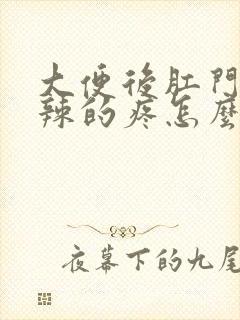 大便後肛門
辣的疼怎麼
夜幕下的九尾